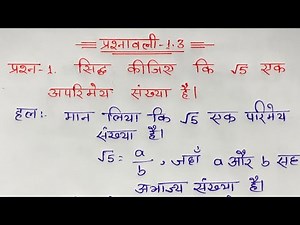 प्रश्नावली-1.3
प्रश्न-1. सिद्ध कीजिए कि √5 एक
अपरिमेय संख्या है।
हल:- मान लिया कि √5 एक परिमेय
संख्या है।
√5 = a/b , जहाँ a और b सह
अभाज्य संख्या है।